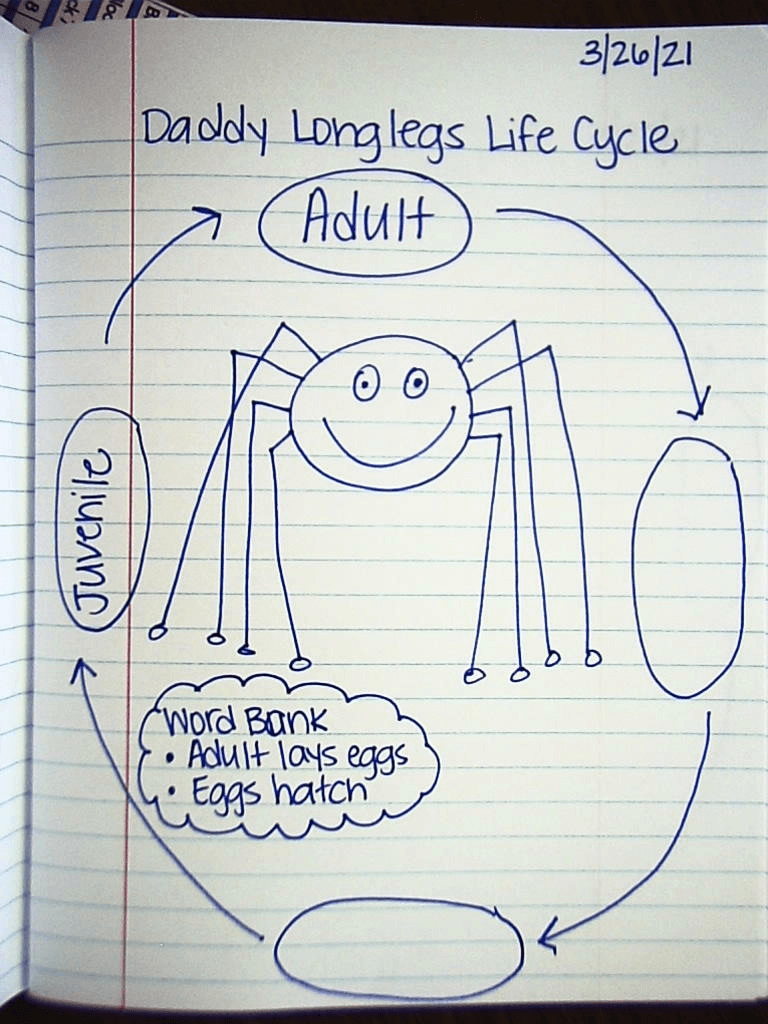 3/26/21
Daddy Longlegs Life Cycle
Adult
Juvenile
Word Bank
• Adult lays eggs
• Eggs hatch